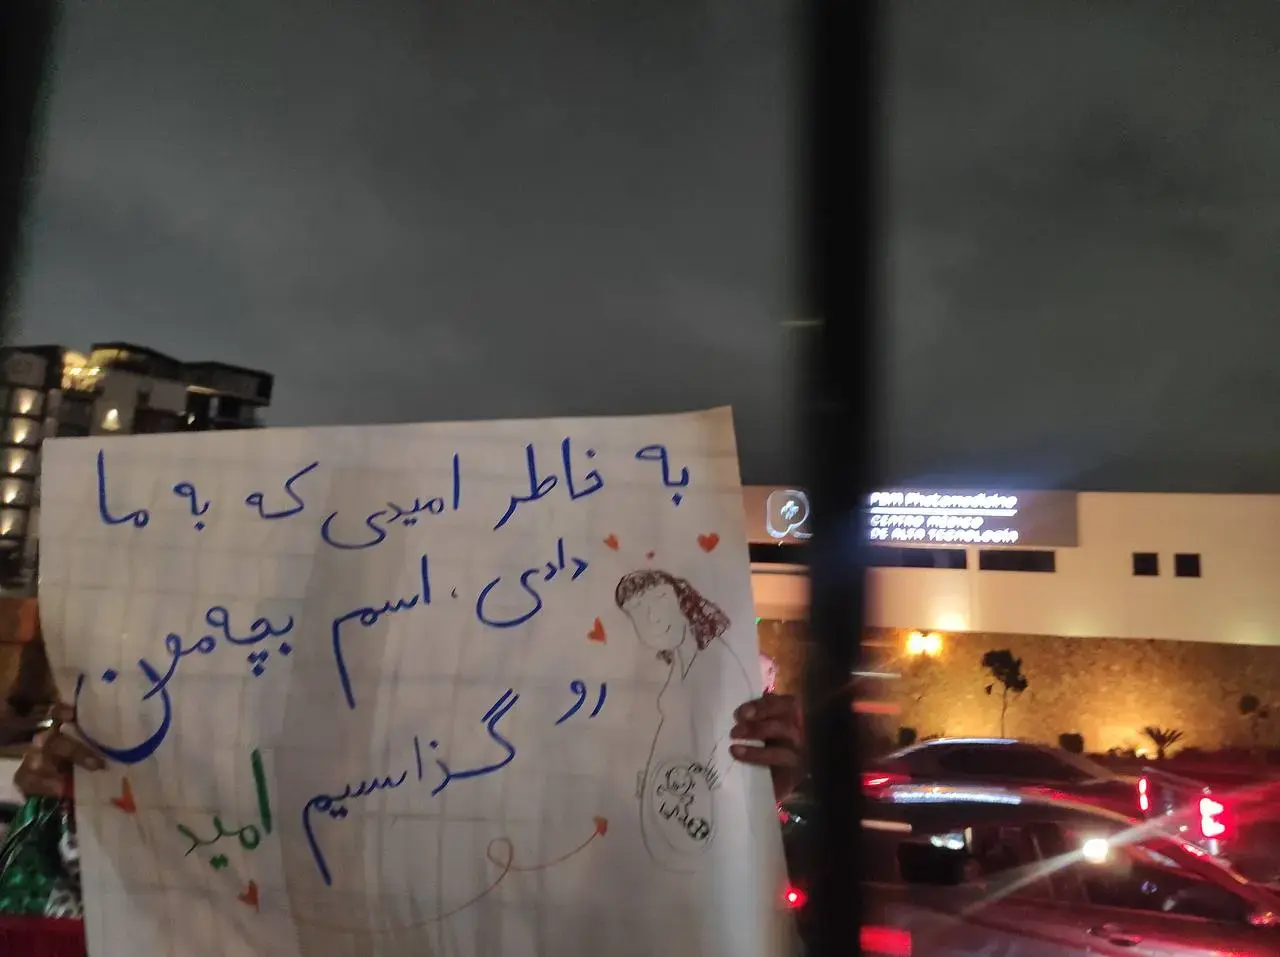 به خاطر امیدی که به ما
دادی، اسم بچه‌مون
رو گذاسیم
امید
PBM Photomedicine
CENTRO MÉDICO
DE ALTA TECNOLOGÍA